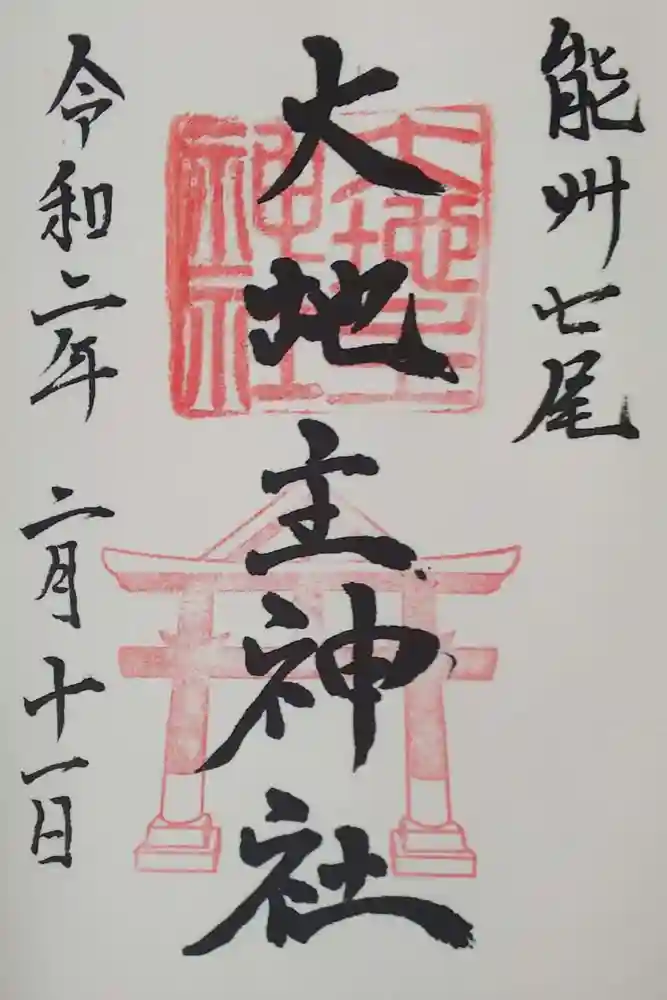 能州七尾
大地主神社
大地主
神社
令和二年 二月十一日